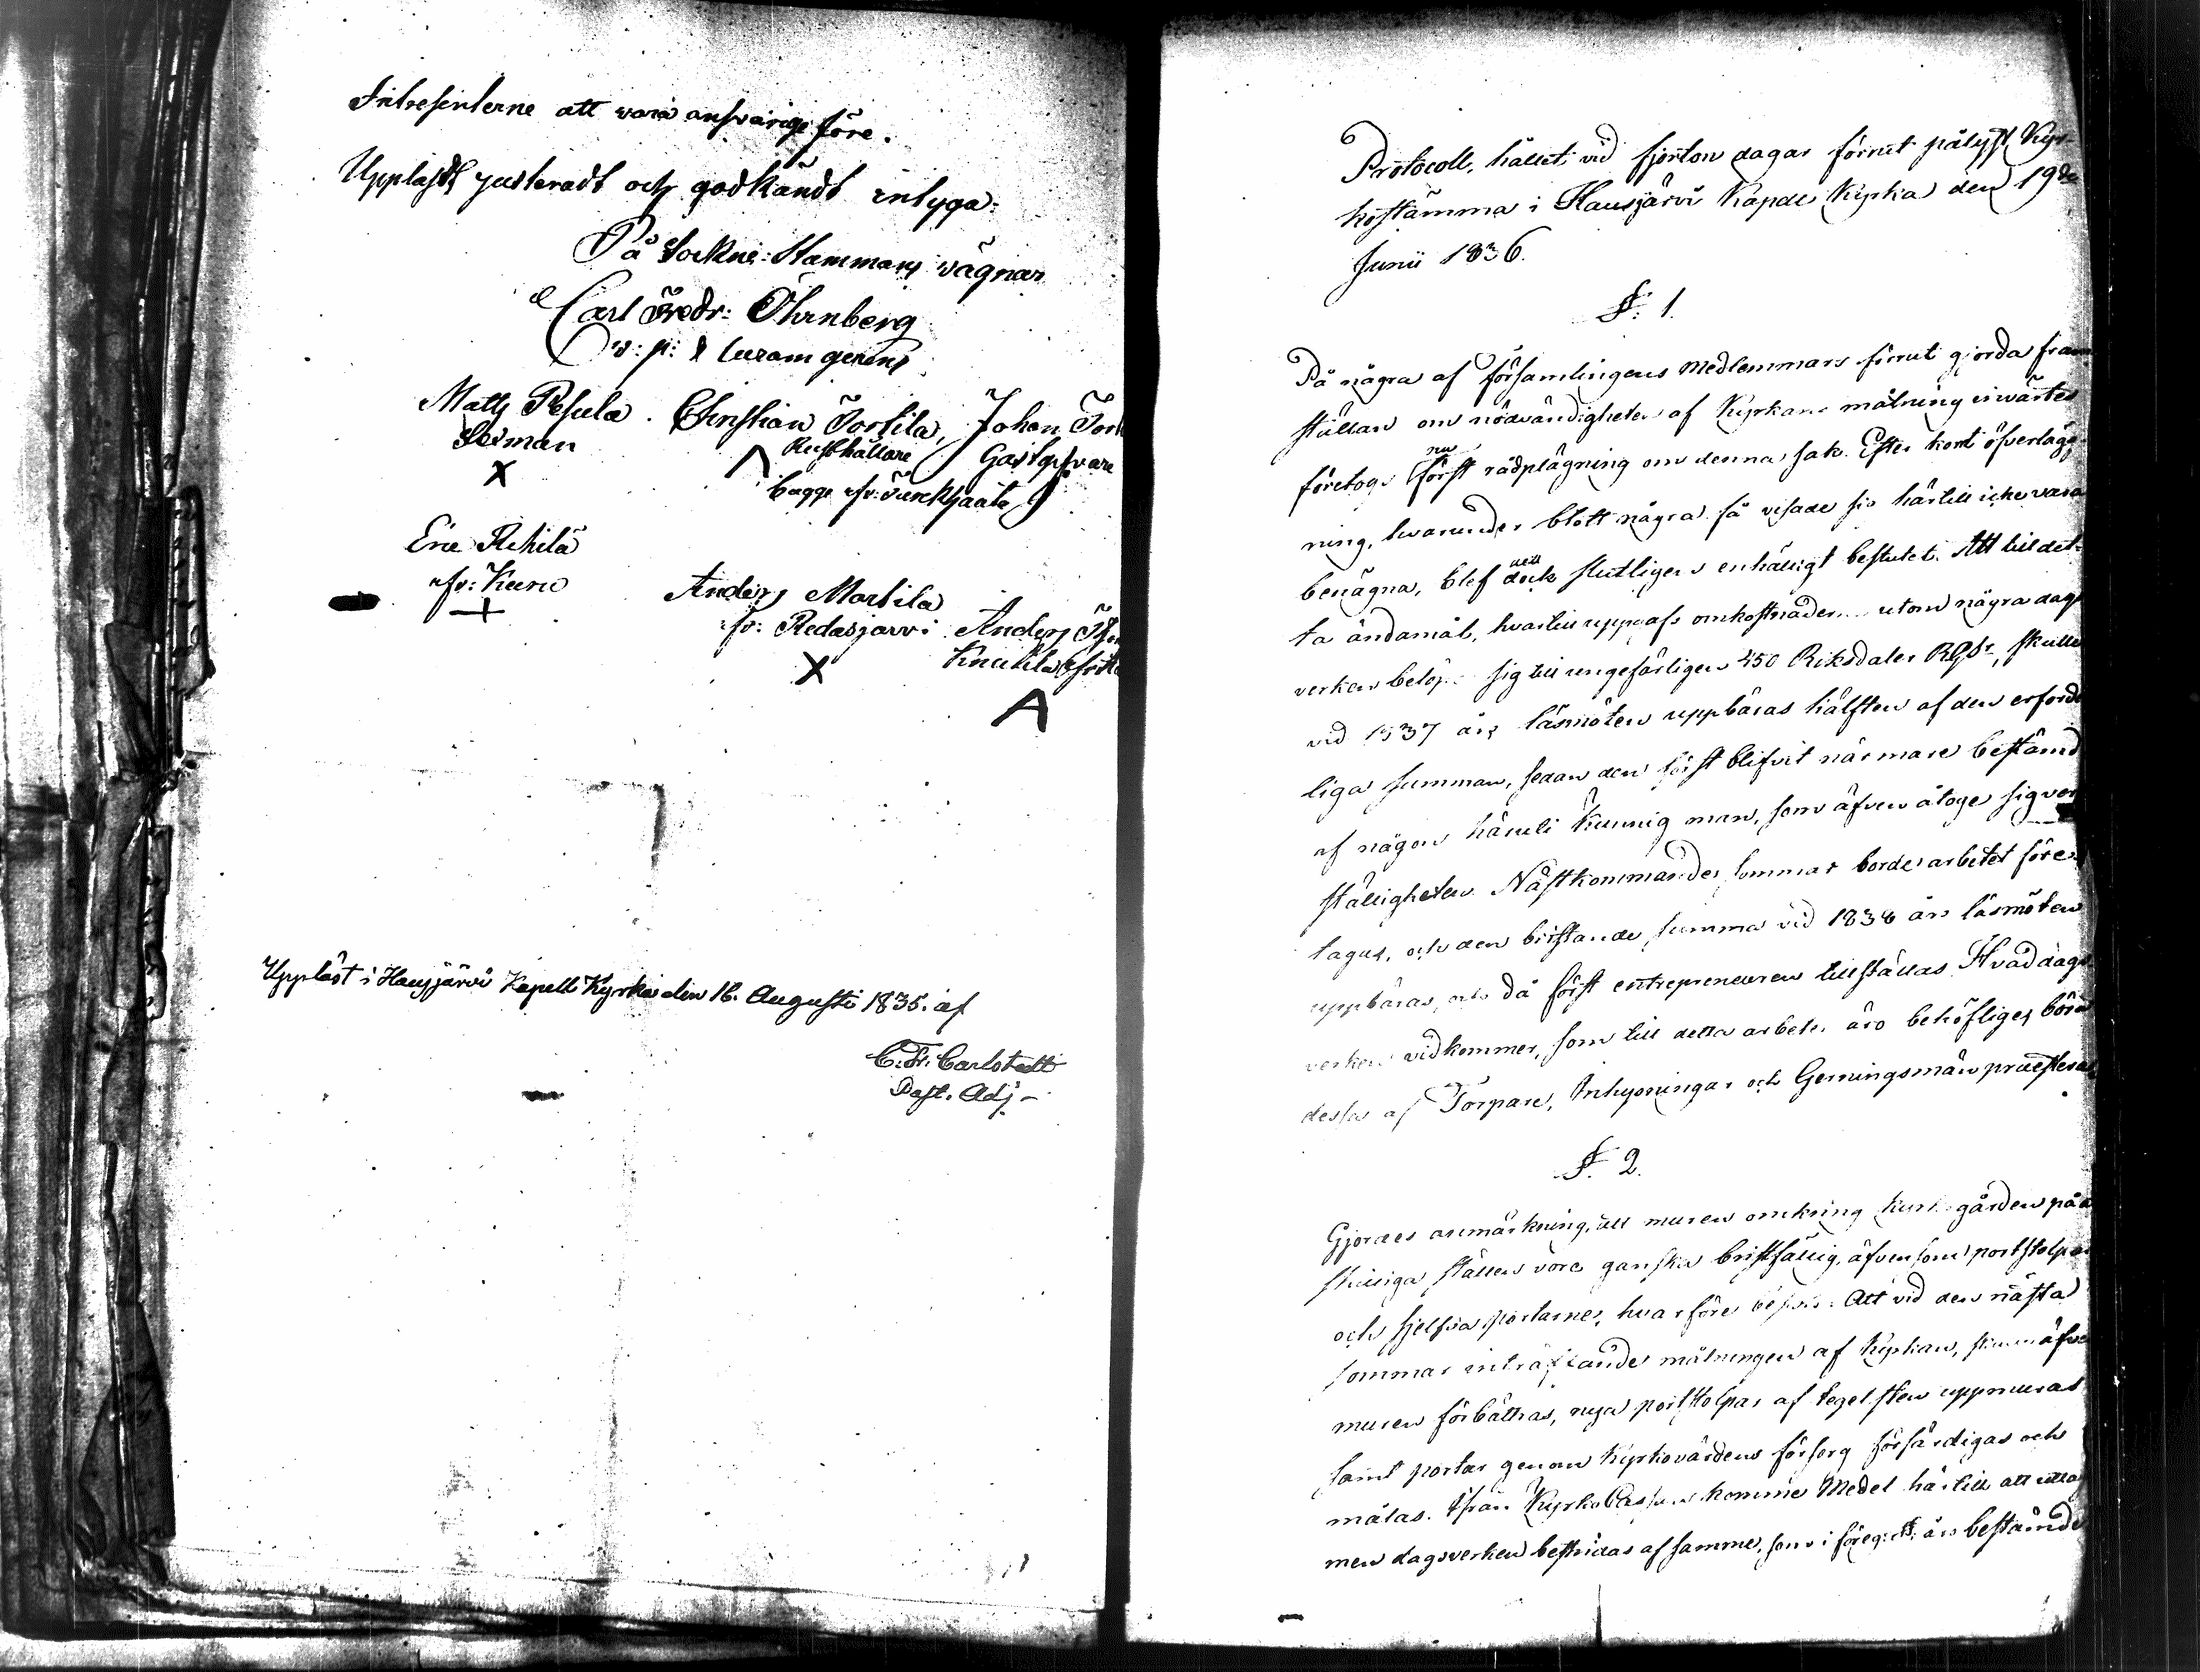 Intressenterne att vara ansvarige före.
Uppläst, justeradt och godkändt intyga:
På Sockne-Stammans vägnar
Carl Fredr: Öhrnberg
v: p: & curam gerens
Matts Resula. Christian Tortila, Johan
Sexman Rusthållare Gästgifvare
X bägge ifr:
Eric Rihilä
ifr: Kuru Anders Martila
ifr: Redasjärvi Anders
X Knuttila ifrån
Uppläst i Hausjärvi Kapell Kyrka den 16. Augusti 1835. af
C. Fr. Carlstedt
Past. Adj.
Protocoll, hållet vid fjorton dagar förrut pålyst Kyr-
kostämma i Hausjärvi Kapell Kyrka den 19de
Junii 1836.
§. 1.
På några af församlingens medlemmars förrut gjorda fram
ställan om nödvändigheten af Kyrkans målning invärtes
företogs nu först rådplägning om denna sak. Efter kort öfverlägg
ning, hvarunder blott några få visade sig härtill icke vara
benägna, blef dock slutligen enhälligt beslutet: Att till det-
ta ändamål, hvartill uppgafs omkostnaden utom några dags
verken belöpa sig till ungefärligen 450 Riksdaler RGds, skulle
vid 1837 års läsmöten uppbäras hälften af den erforder
liga summan, sedan den först blifvit närmare bestämd
af någon häruti kunnig man, som äfven åtoge sig verk
ställigheten. Nästkommande sommar borde arbetet före-
tagas, och den bristande summa vid 1838 års läsmöten
uppbäras, och då först entrepreneuren tillställas. Hvad dags
verken vidkommer, som till detta arbete äro behöfliga, böra
dessa af Torpare, Inhysningar och Gerningsmän præsteras
§. 2.
Gjordes anmärkning, att muren omkring kyrkogården på
skilliga ställen vore ganska bristfällig, äfvensom portstolpar
och sjelfva portarne, hvarföre beslöts: Att vid den nästa
sommar inträffande målningen af Kyrkan, skulle äfven
muren förbättras, nya portstolpar af tegelsten uppmuras
samt portar genom Kyrkovärdens försorg förfärdigas och
målas. Ifrån Kyrko Cassan komme Medel härtill att utta
men dagsverken bestridas af samme, som i föreg: §: äro bestämde